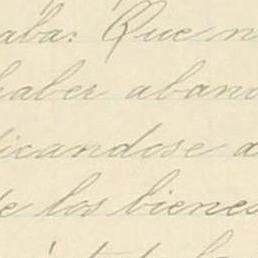 aba: Que n
haber aband
icandose a
de los bienes